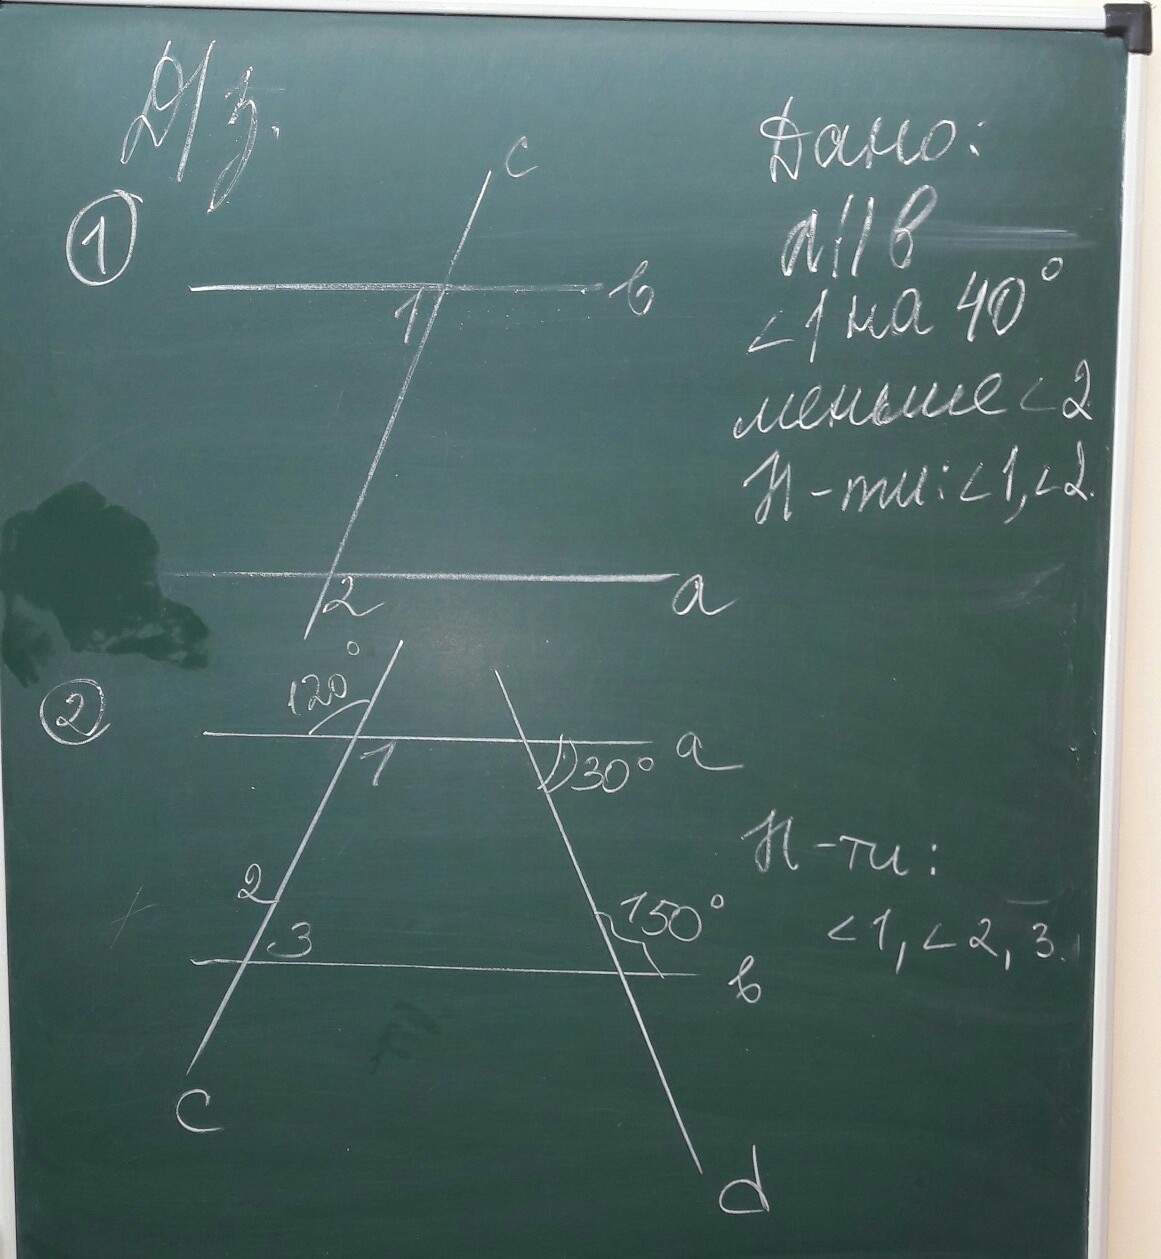 Д/з.
①
c
b
1
2
a
Дано:
a||b
<1 на 40°
меньше <2
Н-ти: <1, <2.
②
120°
1
30°
a
2
3
150°
b
c
d
Н-ти:
<1, <2, 3.